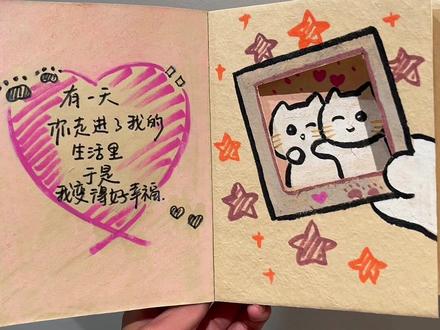 有一天
你走进了我的
生活里
于是
我变得好幸福.